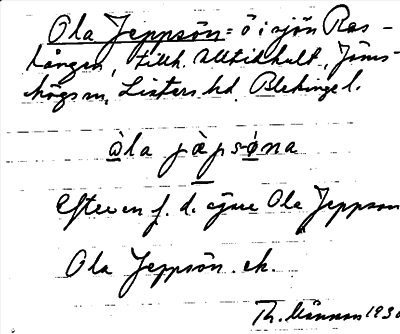 Ola Jeppsön = ö i sjön Ras-
lången, tillh. Alltidhult, Jäms-
högs sn, Listers hd, Blekinge l.
òla jæ̀psǿna
Efter en f. d. ägare Ola Jeppson
Ola Jeppsön. ek.
Th. Månsson 1930